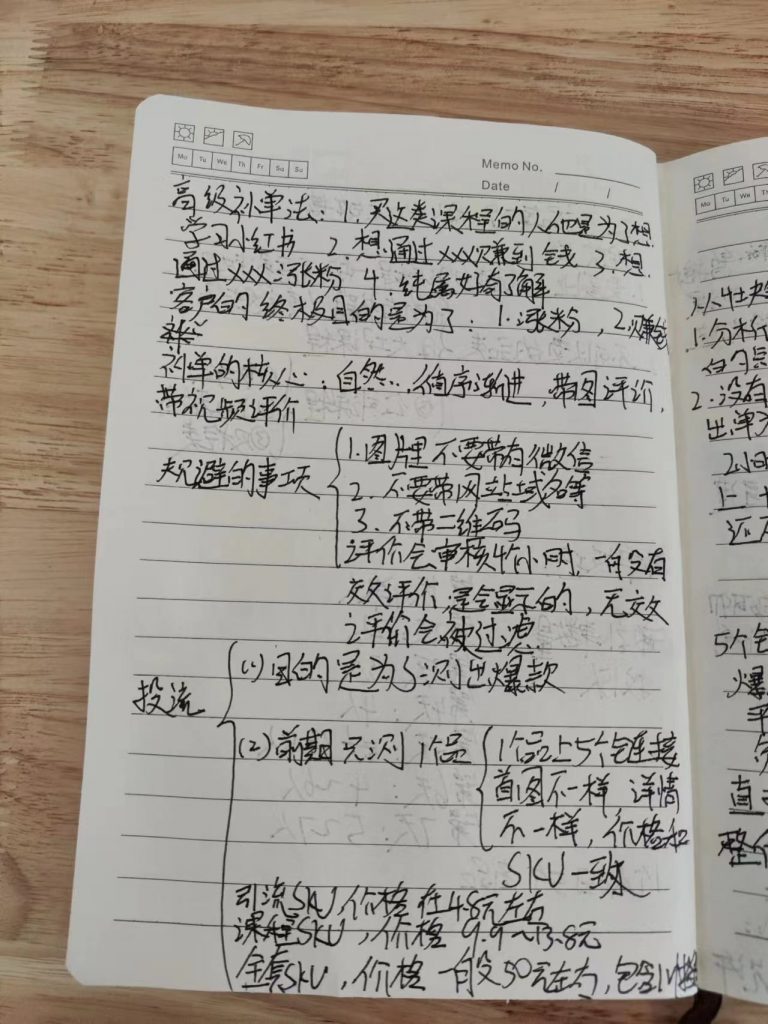 Mo Tu We Th Fr Sa Su
Memo No.
Date / /
高级补单法：1. 买这类课程的人他是为了想
学习小红书 2. 想通过xxx赚到钱 3. 想
通过xxx涨粉 4. 纯属好奇了解
客户的终极目的是为了：1. 涨粉，2. 赚钱
补单的核心：自然..，循序渐进，带图评价，
带视频评价
规避的事项
1. 图片里不要带有微信
2. 不要带网站域名等
3. 不带二维码
评价会审核4个小时，一般有
效评价，是会显示的，无效
评价会被过滤
投流
(1) 目的是为了测出爆款
(2) 前期只测1个品
1个品上5个链接
首图不一样 详情
不一样，价格和
SKU一致
引流SKU，价格在4.8元左右
课程SKU，价格9.9~13.8元
全套SKU，价格一般50元左右，包含
Mo Tu We Th
1. 分析
2. 没有
出单
5个
爆
整个